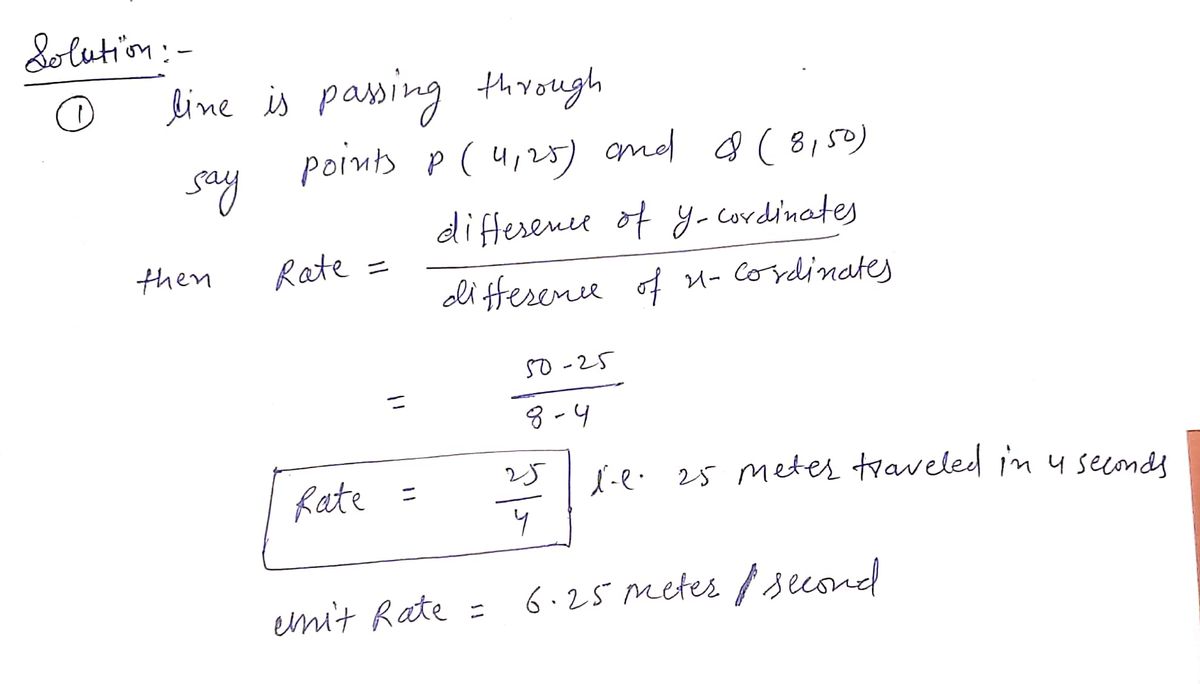 Solution :-
① line is passing through
say points P ( 4,25) and Q ( 8,50)
then Rate = difference of y-cordinates / difference of x-cordinates
= 50-25 / 8-4
Rate = 25/4 i.e. 25 meter traveled in 4 seconds
unit Rate = 6.25 meter / second